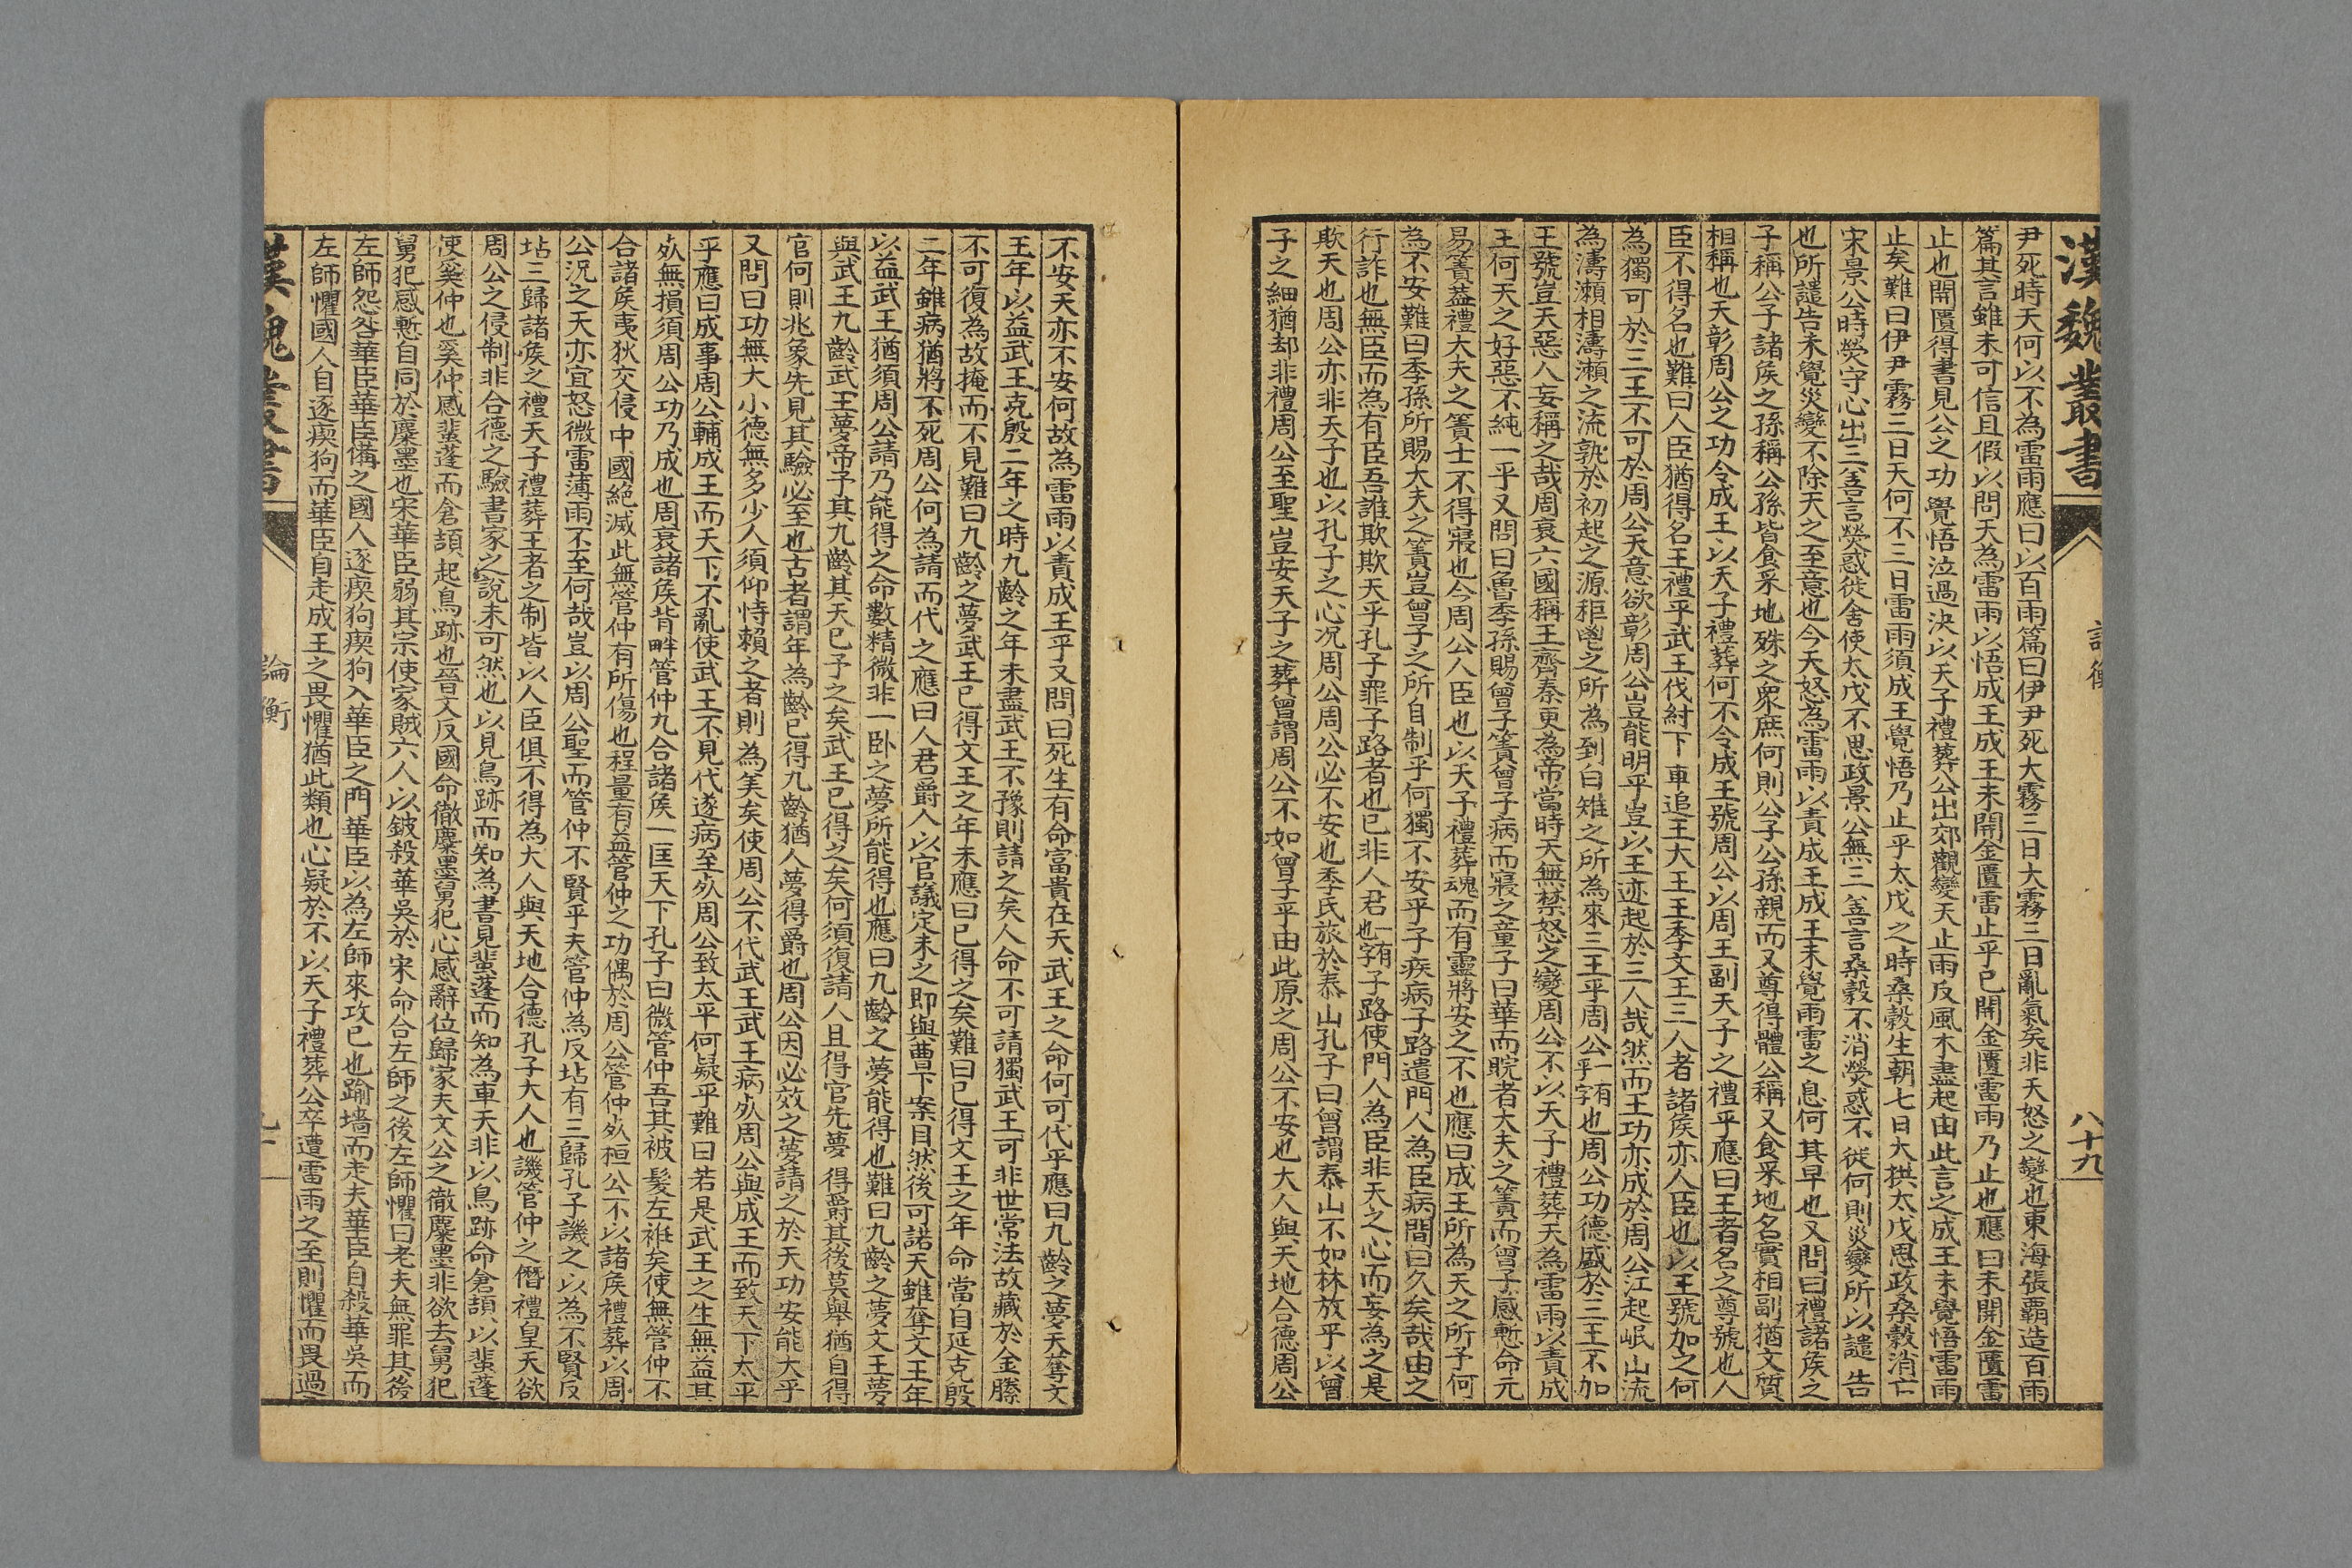 漢魏叢書
論衡
八十九
尹死時天何以不為雷雨應曰以百雨篇曰伊尹死大霧三日大霧三日亂氣矣非天怒之變也東海張霸造百雨
篇其言雖未可信且假以問天為雷雨以悟成王成王未開金匱雷止乎已開金匱雷雨乃止也應曰未開金匱雷
止也開匱得書見公之功覺悟泣過決以天子禮葬公出郊觀變天止雨反風禾盡起由此言之成王未覺悟雷雨
止矣難曰伊尹霧三日天何不三日雷雨須成王覺悟乃止乎太戊之時桑穀生朝七日大拱太戊思政桑穀消亡
宋景公時熒守心出三善言熒惑徙舍使太戊不思政景公無三善言桑穀不消熒惑不徙何則災變所以譴告
也所譴告未覺災變不除天之至意也今天怒為雷雨以責成王成王未覺雨雷之息何其早也又問曰禮諸侯之
子稱公子諸侯之孫稱公孫皆食采地殊之衆庶何則公子公孫親而又尊得體公稱又食采地名實相副猶文質
相稱也天彰周公之功令成王以天子禮葬何不令成王號周公以周王副天子之禮乎應曰王者名之尊號也人
臣不得名也難曰人臣猶得名王禮乎武王伐紂下車追王大王王季文王三人者諸侯亦人臣也以王號加之何
為獨可於三王不可於周公天意欲彰周公豈能明乎豈以王迹起於三人哉然而王功亦成於周公江起岷山流
為濤瀨相濤瀨之流孰於初起之源秬鬯之所為到白雉之所為來三王乎周公乎一有也周公功德盛於三王不加
王號豈天惡人妄稱之哉周衰六國稱王齊秦更為帝當時天無禁怒之變周公不以天子禮葬天為雷雨以責成
王何天之好惡不純一乎又問曰魯季孫賜曾子簀曾子病而寢之童子曰華而睆者大夫之簀而曾子感慙命元
易簀蓋禮大夫之簀士不得寢也今周公人臣也以天子禮葬魂而有靈將安之不也應曰成王所為天之所予何
為不安難曰季孫所賜大夫之簀豈曾子之所自制乎何獨不安乎子疾病子路遣門人為臣病間曰久矣哉由之
行詐也無臣而為有臣吾誰欺欺天乎孔子罪子路者也已非人君也一有子路使門人為臣非天之心而妄為之是
欺天也周公亦非天子也以孔子之心況周公周公必不安也季氏旅於泰山孔子曰曾謂泰山不如林放乎以曾
子之細猶却非禮周公至聖豈安天子之葬曾謂周公不如曾子乎由此原之周公不安也大人與天地合德周公
不安天亦不安何故為雷雨以責成王乎又問曰死生有命富貴在天武王之命何可代乎應曰九齡之夢天奪文
王年以益武王克殷二年之時九齡之年未盡武王不豫則請之矣人命不可請獨武王可非世常法故藏於金縢
不可復為故掩而不見難曰九齡之夢武王已得文王之年未應曰已得之矣難曰已得文王之年命當自延克殷
二年雖病猶將不死周公何為請而代之應曰人君爵人以官議定未之即與曹下案目然後可諾天雖奪文王年
以益武王猶須周公請乃能得之命數精微非一卧之夢所能得也應曰九齡之夢能得也難曰九齡之夢文王夢
與武王九齡武王夢帝予其九齡其天已予之矣武王已得之矣何須復請人且得官先夢得爵其後莫舉猶自得
官何則兆象先見其驗必至也古者謂年為齡已得九齡猶人夢得爵也周公因必效之夢請之於天功安能大乎
又問曰功無大小德無多少人須仰恃賴之者則為美矣使周公不代武王武王病死周公與成王而致天下太平
乎應曰成事周公輔成王而天下不亂使武王不見代遂病至死周公致太平何疑乎難曰若是武王之生無益其
死無損須周公功乃成也周衰諸侯背畔管仲九合諸侯一匡天下孔子曰微管仲吾其被髮左袵矣使無管仲不
合諸侯夷狄交侵中國絕滅此無管仲有所傷也程量有益管仲之功偶於周公管仲死桓公不以諸侯禮葬以周
公況之天亦宜怒微雷薄雨不至何哉豈以周公聖而管仲不賢乎夫管仲為反坫有三歸孔子譏之以為不賢反
坫三歸諸侯之禮天子禮葬王者之制皆以人臣俱不得為大人與天地合德孔子大人也譏管仲之僭禮皇天欲
周公之侵制非合德之驗書家之說未可然也以見鳥跡而知為書見蜚蓬而知為車天非以鳥跡命倉頡以蜚蓬
使奚仲也奚仲感蜚蓬而倉頡起鳥跡也晉文反國命徹麋墨舅犯心感辭位歸家夫文公之徹麋墨非欲去舅犯
舅犯感慙自同於麋墨也宋華臣弱其宗使家賊六人以鈹殺華吳於宋命合左師之後左師懼曰老夫無罪其後
左師怨咎華臣華臣備之國人逐瘈狗瘈狗入華臣之門華臣以為左師來攻已也踰墻而走夫華臣自殺華吳而
左師懼國人自逐瘈狗而華臣自走成王之畏懼猶此類也心疑於不以天子禮葬公卒遭雷雨之至則懼而畏過
漢魏叢書
論衡